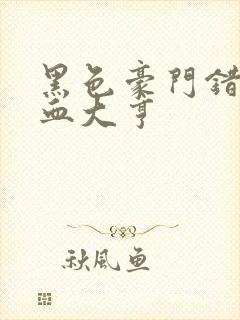 黑色豪門錯
血大亨
秋風魚